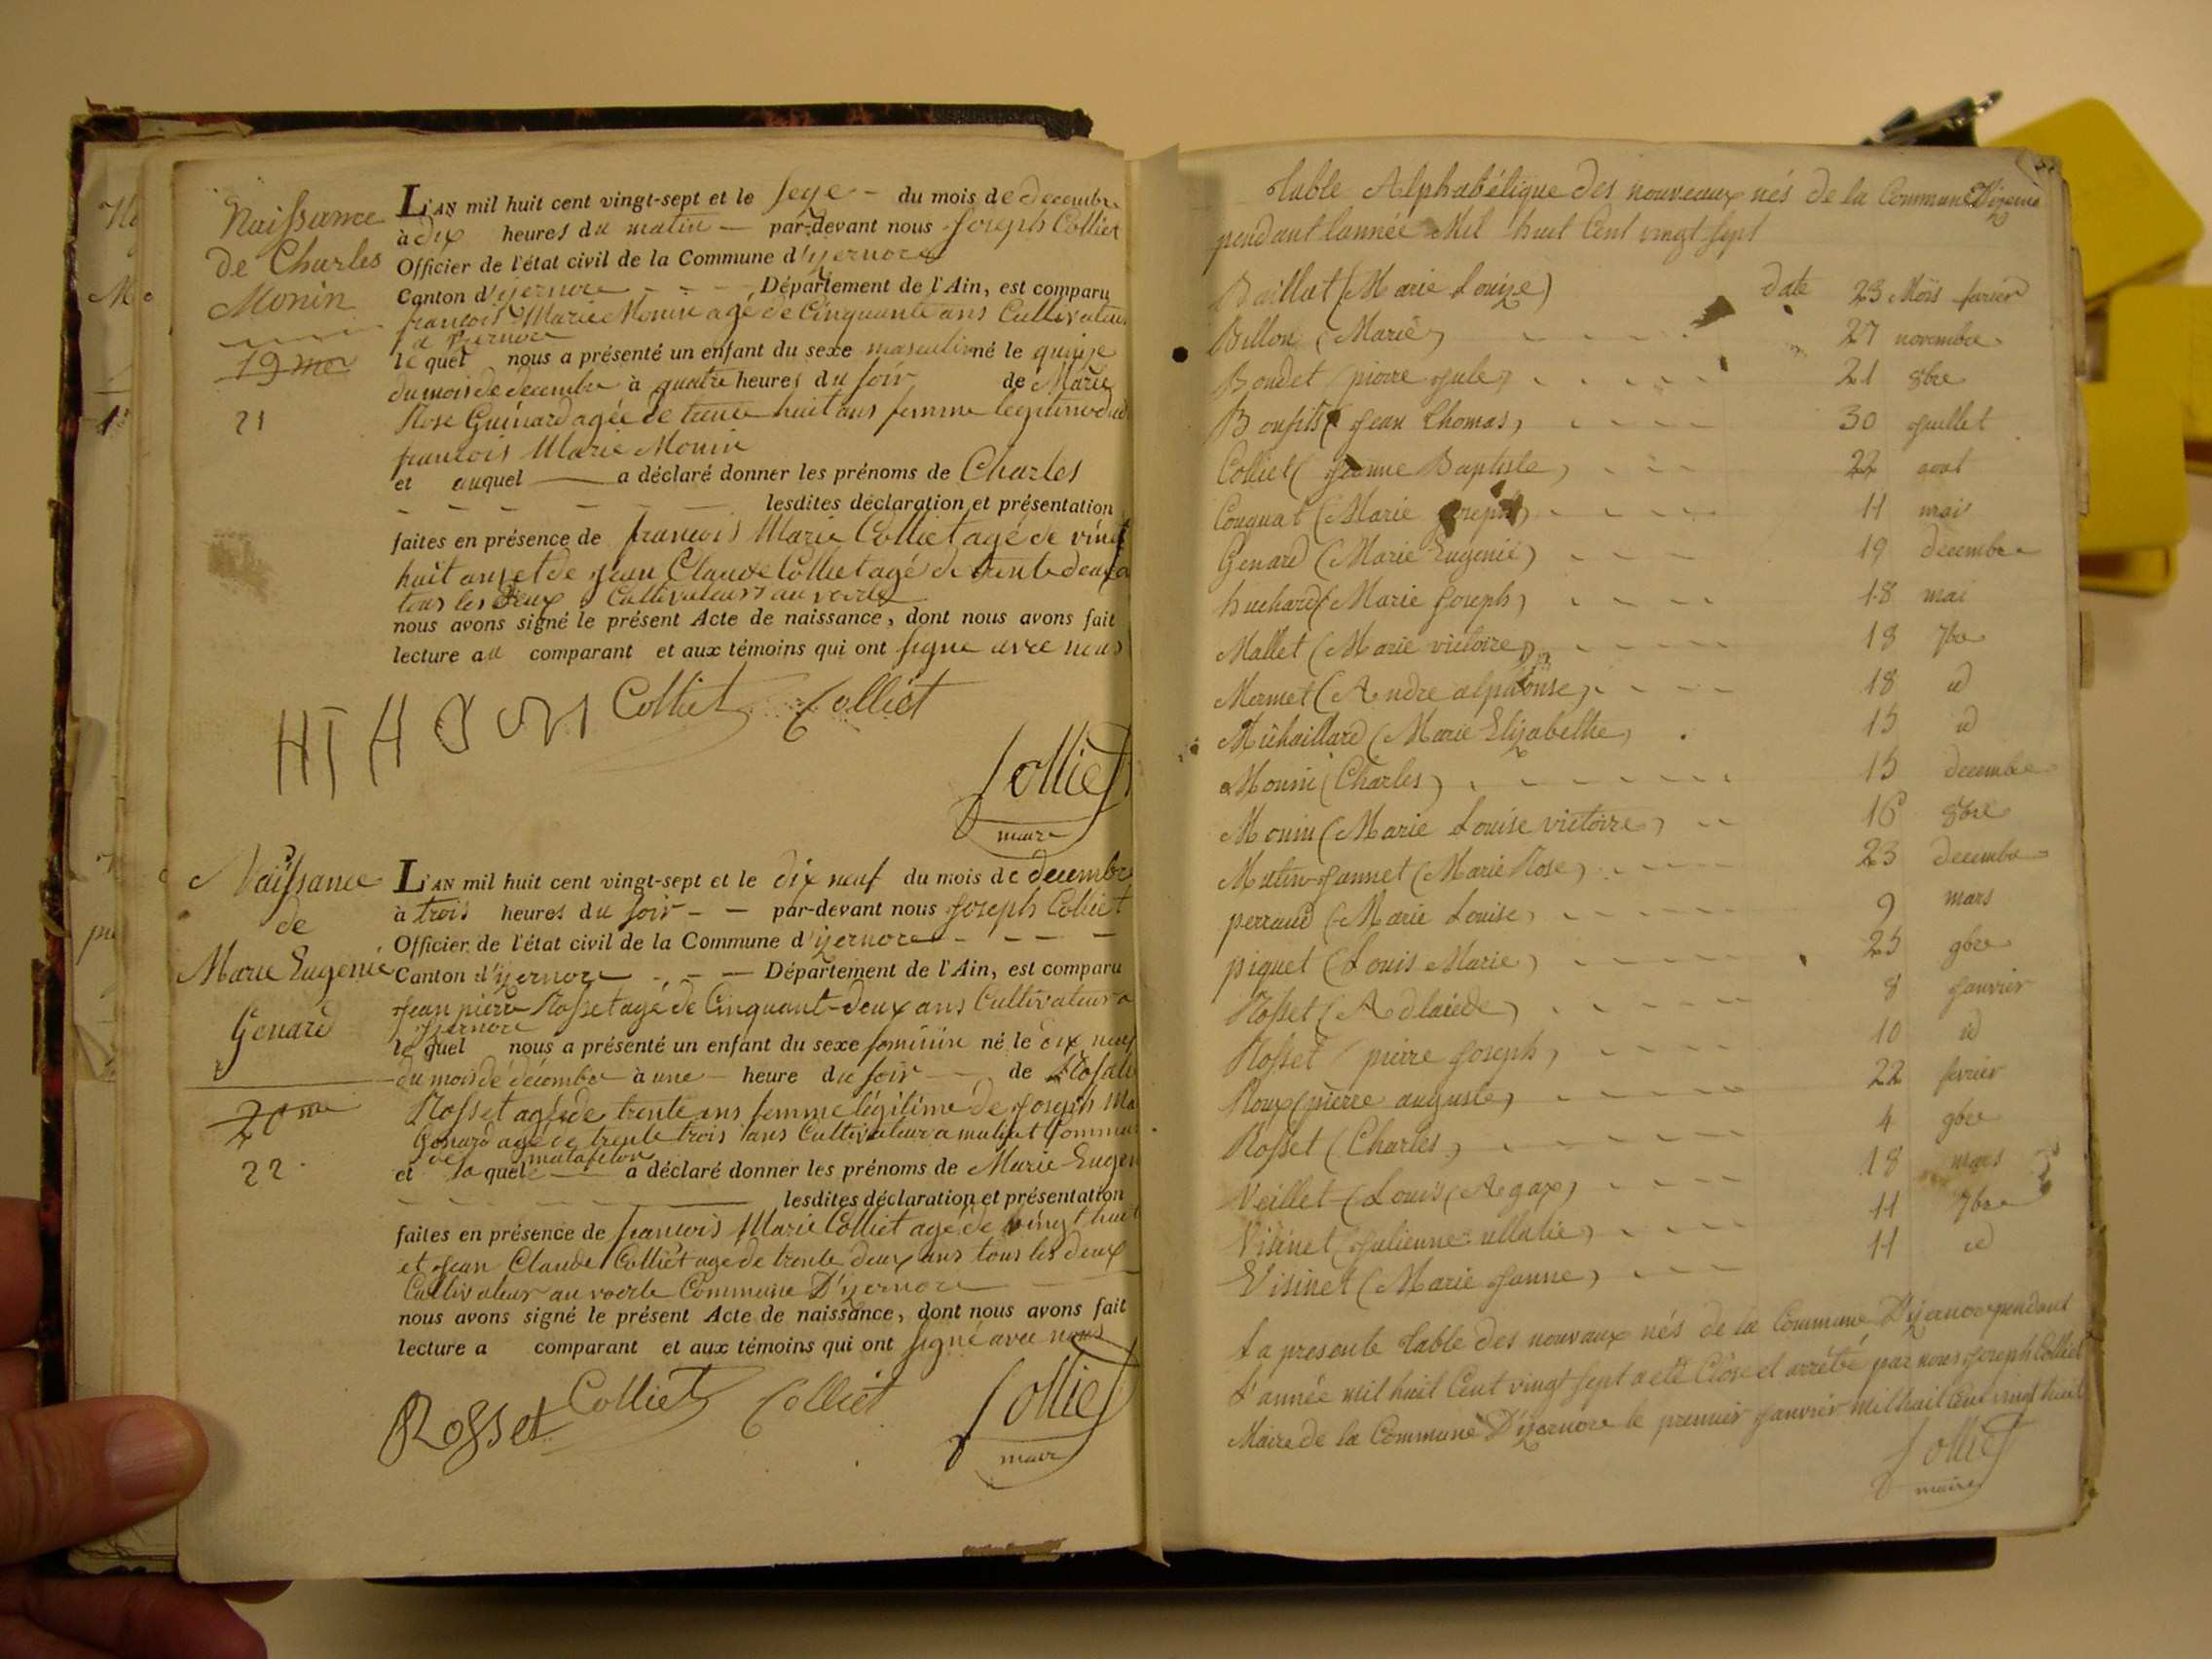 Naissance
de Charles
Monin
19me
21
L'AN mil huit cent vingt-sept et le seze du mois de decembre
à dix heures du matin par-devant nous Joseph Colliet
Officier de l'état civil de la Commune d'izernore
Canton d'izernore Département de l'Ain, est comparu
francois Marie Monin agé de Cinquante ans Cultivateur
a izernore
le quel nous a présenté un enfant du sexe masculin né le quinze
du mois de decembre à quatre heures du soir de Marie
Rose Guinard agée de trente huit ans femme legitime dud
francois Marie Monin
et auquel a déclaré donner les prénoms de Charles
lesdites déclaration et présentation
faites en présence de francois Marie Colliet agé de vingt
huit ans et de Jean Claude Colliet agé de trente deux
tous les deux Cultivateurs au voerle
nous avons signé le présent Acte de naissance, dont nous avons fait
lecture au comparant et aux témoins qui ont signe avec nous
Colliet Colliet
Colliet
maire
Naissance
de
Marie Eugenie
Genard
20me
22
L'AN mil huit cent vingt-sept et le dix neuf du mois de decembre
à trois heures du soir par-devant nous Joseph Colliet
Officier de l'état civil de la Commune d'izernore
Canton d'izernore Département de l'Ain, est comparu
Jean pierre Rosset agé de Cinquant-deux ans Cultivateur a
izernore
le quel nous a présenté un enfant du sexe feminin né le dix neuf
du mois de décembre à une heure du soir de Rosalie
Rosset agée de trente ans femme légitime de Joseph Ma
Genard agé de trente trois ans Cultivateur a mulciat Commune
de matafelon
et la quele a déclaré donner les prénoms de Marie Eugen
lesdites déclaration et présentation
faites en présence de francois Marie Colliet agé de vingt huit
et Jean Claude Colliet age de trente deux ans tous les deux
Cultivateur au voerle Commune D'izernore
nous avons signé le présent Acte de naissance, dont nous avons fait
lecture a comparant et aux témoins qui ont signé avec nous
Rosset Colliet Colliet Colliet
maire
Table Alphabétique des nouveaux nés de la Commune D'izernore
pendant l'année Mil huit Cent vingt sept
Baillat (Marie Louize) date 23 Mois fevrier
Billon (Marie) 27 novembre
Boudet (pierre Jule) 21 8bre
Bonfils (Jean Thomas) 30 Juillet
Colliet (Jeanne Baptiste) 22 aout
Couquat (Marie Joseph) 11 mai
Genard (Marie Eugenie) 19 decembre
huchard (Marie Joseph) 18 mai
Mallet (Marie victoire) 18 7bre
Mermet (Andre alphonse) 18 id
Michaillard (Marie Elizabethe) 15 id
Monin (Charles) 15 decembre
Monin (Marie Louise victoire) 16 8bre
Mutin-Jannet (Marie Rose) 23 decembre
perraud (Marie Louise) 9 mars
piquet (Louis Marie) 25 9bre
Rosset (Adlaiede) 8 Janvier
Rosset (pierre Joseph) 10 id
Roux (pierre auguste) 22 fevrier
Rosset (Charles) 4 9bre
Veillet (Louis (Agax) 18 mars
Visinet (Julienne ullalie) 11 7bre
Visinet (Marie Janne) 11 id
La presente Table des nouvaux nés de la Commune D'izernore pendant
L'année mil huit Cent vingt sept a été Close et arrêté par nous Joseph Colliet
Maire de la Commune D'izernore le premier Janvier mil huit Cent vingt huit
Colliet
maire